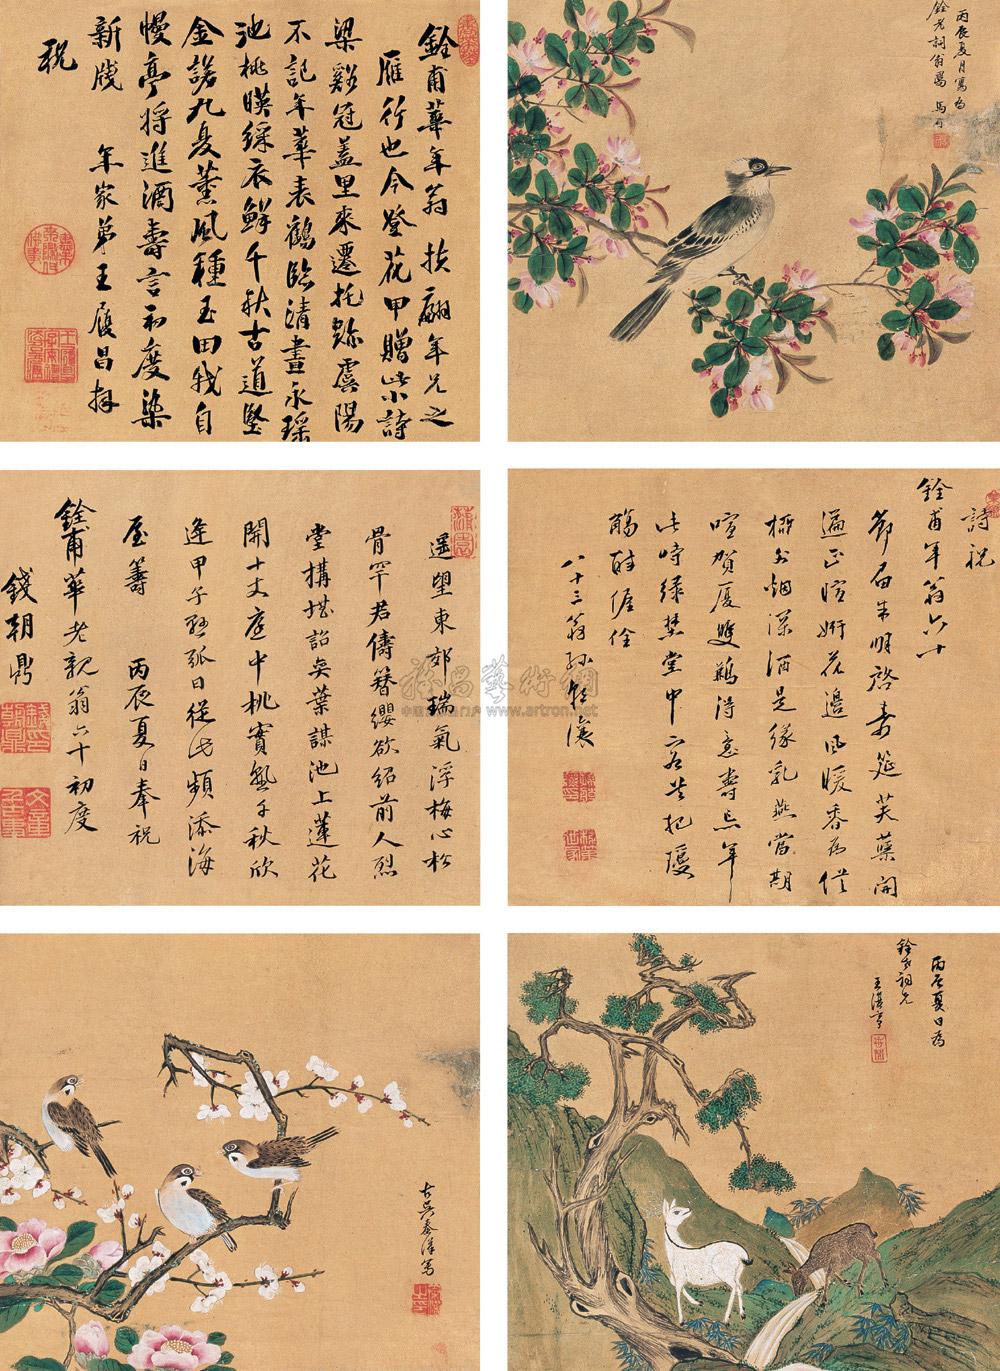 銓甫華年翁 扶翮年兄之
雁行也今登花甲贈此小詩
梁谿冠蓋里來遷托跡虞陽
不記年華表鶴臨清晝永瑤
池桃暎綵衣鮮千秋古道堅
金諾九夏薰風種玉田我自
幔亭将進酒壽言初度染
新牋 年家弟王履昌拜
祝
丙辰夏月寫爲
銓老詞翁
遥望東郊瑞氣浮梅心松
骨罕君儔簪纓欲紹前人烈
堂搆堪詒奕葉謀池上蓮花
開十丈庭中桃實熟千秋欣
逢甲子懸弧日從此頻添海
屋籌 丙辰夏日奉祝
銓甫華老親翁六十初度
錢朝鼎
詩祝
銓甫年翁六十
節屆朱明啓壽筵芙蕖開
遍正暄妍花邉風暖香爲
酒是緣乳燕當期
喧賀厦雙鵜得意壽忘年
此時綠埜堂中
觴醉偓佺
八十三翁孫
古吳秦漢寫
丙辰夏日爲
銓老詞兄
王
禄昌藝術網
www.artron.net